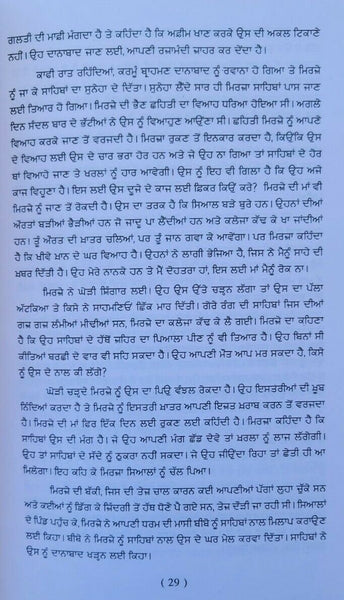 ਗਲਤੀ ਦੀ ਮਾਫ਼ੀ ਮੰਗਦਾ ਹੈ ਤੇ ਕਹਿੰਦਾ ਹੈ ਕਿ ਅਫ਼ੀਮ ਖਾਣ ਕਰਕੇ ਉਸ ਦੀ ਅਕਲ ਟਿਕਾਣੇ
ਨਹੀਂ। ਉਹ ਦਾਨਾਬਾਦ ਜਾਣ ਲਈ, ਆਪਣੀ ਰਜ਼ਾਮੰਦੀ ਜ਼ਾਹਰ ਕਰ ਦੇਂਦਾ ਹੈ।
ਕਾਫੀ ਰਾਤ ਰਹਿੰਦਿਆਂ, ਕਰਮੂੰ ਬ੍ਰਾਹਮਣ ਦਾਨਾਬਾਦ ਨੂੰ ਰਵਾਨਾ ਹੋ ਗਿਆ ਤੇ ਮਿਰਜ਼ੇ
ਨੂੰ ਜਾ ਕੇ ਸਾਹਿਬਾਂ ਦਾ ਸੁਨੇਹਾ ਦੇ ਦਿੱਤਾ। ਸੁਨੇਹਾ ਲੈਂਦੇ ਸਾਰ ਹੀ ਮਿਰਜ਼ਾ ਸਾਹਿਬਾਂ ਪਾਸ ਜਾਣ
ਲਈ ਤਿਆਰ ਹੋ ਗਿਆ। ਮਿਰਜ਼ੇ ਦੀ ਭੈਣ ਛਹਿਤੀ ਦਾ ਵਿਆਹ ਧਰਿਆ ਹੋਇਆ ਸੀ। ਅਗਲੇ
ਦਿਨ ਸੰਦਲ ਬਾਰ ਦੇ ਭੱਟੀਆਂ ਨੇ ਉਸ ਨੂੰ ਵਿਆਹੁਣ ਆਉਣਾ ਸੀ। ਛਹਿਤੀ ਮਿਰਜ਼ੇ ਨੂੰ ਆਪਣੇ
ਵਿਆਹ ਕਰਕੇ ਜਾਣ ਤੋਂ ਵਰਜਦੀ ਹੈ। ਮਿਰਜ਼ਾ ਰੁਕਣ ਤੋਂ ਇਨਕਾਰ ਕਰਦਾ ਹੈ, ਕਿਉਂਕਿ ਉਸ
ਦੇ ਵਿਆਹ ਲਈ ਉਸ ਦੇ ਚਾਰ ਭਰਾ ਹੋਰ ਹਨ ਅਤੇ ਜੇ ਉਹ ਨਾ ਗਿਆ ਤਾਂ ਸਾਹਿਬਾਂ ਦੇ ਹੋਰ
ਥਾਂ ਵਿਆਹੇ ਜਾਣ ਤੇ ਖਰਲਾਂ ਨੂੰ ਹਾਰ ਆਵੇਗੀ। ਉਸ ਨੂੰ ਇਹ ਵੀ ਗਿਲਾ ਹੈ ਕਿ ਉਹ ਅਜੇ
ਕਾਜ ਵਿਹੂਣਾ ਹੈ। ਇਸ ਲਈ ਉਸ ਦੂਜੇ ਦੇ ਕਾਜ ਲਈ ਫ਼ਿਕਰ ਕਿਉਂ ਕਰੇ? ਮਿਰਜ਼ੇ ਦੀ ਮਾਂ ਵੀ
ਮਿਰਜ਼ੇ ਨੂੰ ਜਾਣ ਤੋਂ ਰੋਕਦੀ ਹੈ। ਉਸ ਦਾ ਤਰਕ ਹੈ ਕਿ ਸਿਆਲ ਬੜੇ ਬੁਰੇ ਹਨ। ਉਹਨਾਂ ਦੀਆਂ
ਔਰਤਾਂ ਬੜੀਆਂ ਭੈੜੀਆਂ ਹਨ ਜੋ ਜਾਦੂ ਪਾ ਲੈਂਦੀਆਂ ਹਨ ਅਤੇ ਕਲੇਜਾ ਕੱਢ ਕੇ ਖਾ ਜਾਂਦੀਆਂ
ਹਨ। ਤੂੰ ਔਰਤ ਦੀ ਖ਼ਾਤਰ ਚਲਿਆਂ, ਪਰ ਤੂੰ ਜਾਨ ਗਵਾ ਕੇ ਆਵੇਂਗਾ। ਪਰ ਮਿਰਜ਼ਾ ਕਹਿੰਦਾ
ਹੈ ਕਿ ਖੀਵੇ ਖ਼ਾਨ ਦੇ ਘਰ ਵਿਆਹ ਹੈ। ਉਹਨਾਂ ਨੇ ਲਾਗੀ ਭੇਜਿਆ ਹੈ, ਜਿਸ ਨੇ ਮੈਨੂੰ ਸਾਹੇ ਦੀ
ਖ਼ਬਰ ਦਿੱਤੀ ਹੈ। ਉਹ ਮੇਰੇ ਨਾਨਕੇ ਹਨ ਤੇ ਮੈਂ ਦੋਹਤਰਾ ਹਾਂ, ਇਸ ਲਈ ਮਾਂ ਮੈਨੂੰ ਰੋਕ ਨਾ।
ਮਿਰਜ਼ੇ ਨੇ ਘੋੜੀ ਸ਼ਿੰਗਾਰ ਲਈ। ਉਹ ਉਸ ਉੱਤੇ ਚੜ੍ਹਨ ਲੱਗਾ ਤਾਂ ਉਸ ਦਾ ਪੱਲਾ
ਅੱਟਕਿਆ ਤੇ ਕਿਸੇ ਨੇ ਸਾਹਮਣਿਓਂ ਛਿੱਕ ਮਾਰ ਦਿੱਤੀ। ਗੋਰੇ ਰੰਗ ਦੀ ਸਾਹਿਬਾਂ ਜਿਸ ਦੀਆਂ
ਗਜ਼ ਗਜ਼ ਲੰਮੀਆਂ ਮੀਢੀਆਂ ਸਨ, ਮਿਰਜ਼ੇ ਦਾ ਕਲੇਜਾ ਕੱਢ ਕੇ ਲੈ ਗਈ। ਮਿਰਜ਼ੇ ਦਾ ਕਹਿਣਾ
ਹੈ ਕਿ ਉਹ ਸਾਹਿਬਾਂ ਦੇ ਹੱਥੋਂ ਜ਼ਹਿਰ ਦਾ ਪਿਆਲਾ ਪੀਣ ਨੂੰ ਵੀ ਤਿਆਰ ਹੈ। ਉਹ ਬਿਨਾਂ ਸੀ
ਕੀਤਿਆਂ ਬਰਛੀ ਦੇ ਵਾਰ ਵੀ ਸਹਿ ਸਕਦਾ ਹੈ। ਉਹ ਆਪਣੀ ਮੌਤ ਆਪ ਮਰ ਸਕਦਾ ਹੈ, ਕਿਸੇ
ਨੂੰ ਉਸ ਦੇ ਨਾਲ ਕੀ ਲੱਗੇ?
ਘੋੜੀ ਚੜ੍ਹਦੇ ਮਿਰਜ਼ੇ ਨੂੰ ਉਸ ਦਾ ਪਿਉ ਵੰਝਲ ਰੋਕਦਾ ਹੈ। ਉਹ ਇਸਤਰੀਆਂ ਦੀ ਖ਼ੂਬ
ਨਿੰਦਿਆਂ ਕਰਦਾ ਹੈ ਤੇ ਮਿਰਜ਼ੇ ਨੂੰ ਇਸਤਰੀ ਖ਼ਾਤਰ ਆਪਣੀ ਇਜ਼ਤ ਖ਼ਰਾਬ ਕਰਨ ਤੋਂ ਵਰਜਦਾ
ਹੈ। ਮਿਰਜ਼ੇ ਦੀ ਮਾਂ ਫਿਰ ਇੱਕ ਦਿਨ ਲਈ ਰੁਕਣ ਲਈ ਕਹਿੰਦੀ ਹੈ। ਮਿਰਜ਼ਾ ਕਹਿੰਦਾ ਹੈ ਕਿ
ਸਾਹਿਬਾਂ ਉਸ ਦੀ ਮੰਗ ਹੈ। ਜੇ ਉਹ ਆਪਣੀ ਮੰਗ ਛੱਡ ਦੇਵੇ ਤਾਂ ਖ਼ਰਲਾਂ ਨੂੰ ਲਾਜ ਲੱਗੇਗੀ।
ਉਹ ਤਾਂ ਸਾਹਿਬਾਂ ਦੇ ਸੱਦੇ ਨੂੰ ਠੁਕਰਾ ਨਹੀਂ ਸਕਦਾ। ਜੇ ਉਹ ਜੀਉਂਦਾ ਰਿਹਾ ਤਾਂ ਛੇਤੀ ਹੀ ਆ
ਮਿਲੇਗਾ। ਇਹ ਕਹਿ ਕੇ ਮਿਰਜ਼ਾ ਸਿਆਲਾਂ ਨੂੰ ਚੱਲ ਪਿਆ।
ਮਿਰਜ਼ੇ ਦੀ ਬੱਕੀ, ਜਿਸ ਦੀ ਤੇਜ਼ ਚਾਲ ਕਾਰਨ ਕਈ ਆਪਣੀਆਂ ਪੱਗਾਂ ਲੁਹਾ ਚੁੱਕੇ ਸਨ
ਅਤੇ ਕਈਆਂ ਨੂੰ ਡਿੱਗ ਕੇ ਜ਼ਿੰਦਗੀ ਤੋਂ ਹੱਥ ਧੋਣੇ ਪੈ ਗਏ ਸਨ, ਤੇਜ਼ ਦੌੜੀ ਜਾ ਰਹੀ ਸੀ। ਸਿਆਲਾਂ
ਦੇ ਪਿੰਡ ਪਹੁੰਚ ਕੇ, ਮਿਰਜ਼ੇ ਨੇ ਆਪਣੀ ਧਰਮ ਦੀ ਮਾਸੀ ਬੀਬੋ ਨੂੰ ਸਾਹਿਬਾਂ ਨਾਲ ਮਿਲਾਪ ਕਰਾਉਣ
ਲਈ ਕਿਹਾ। ਬੀਬੋ ਨੇ ਮਿਰਜ਼ੇ ਨੂੰ ਸਾਹਿਬਾਂ ਨਾਲ ਉਸ ਦੇ ਘਰ ਮੇਲ ਕਰਵਾ ਦਿੱਤਾ। ਸਾਹਿਬਾਂ ਨੇ
ਉਸ ਨੂੰ ਦਾਨਾਬਾਦ ਖੜ੍ਹਨ ਲਈ ਕਿਹਾ।
( 29 )